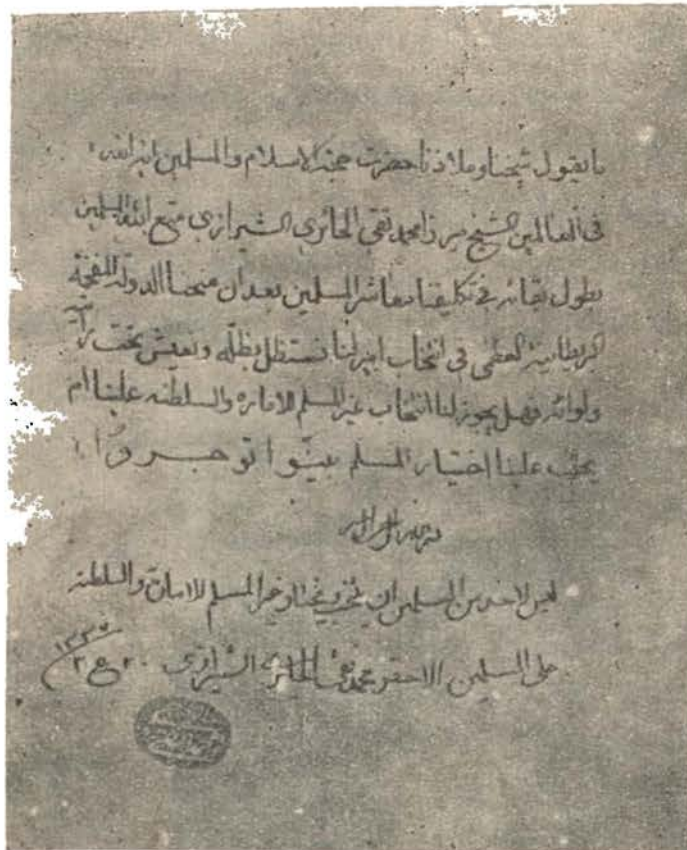 ما يقول شيخنا وملاذنا حضرت حجة الاسلام والمسلمين اية الله
في العالمين الشيخ ميرزا محمد تقي الحائري الشيرازي متع الله المسلمين
بطول بقائه في تكليفنا معاشر المسلمين بعد ان منحنا الدولة المفخمة
البريطانية العظمى في انتخاب امير لنا نستظل بظله ونعيش تحت رايته
ولوائه فهل يجوز لنا انتخاب غير المسلم للامارة والسلطنة علينا ام
يجب علينا اختيار المسلم بينوا توجروا
ليس لاحد من المسلمين ان ينتخب ويختار غير المسلم للامارة والسلطنة
على المسلمين الاحقر محمد تقي الحائري الشيرازي ٢٠ ع ٢ ١٣٣٧